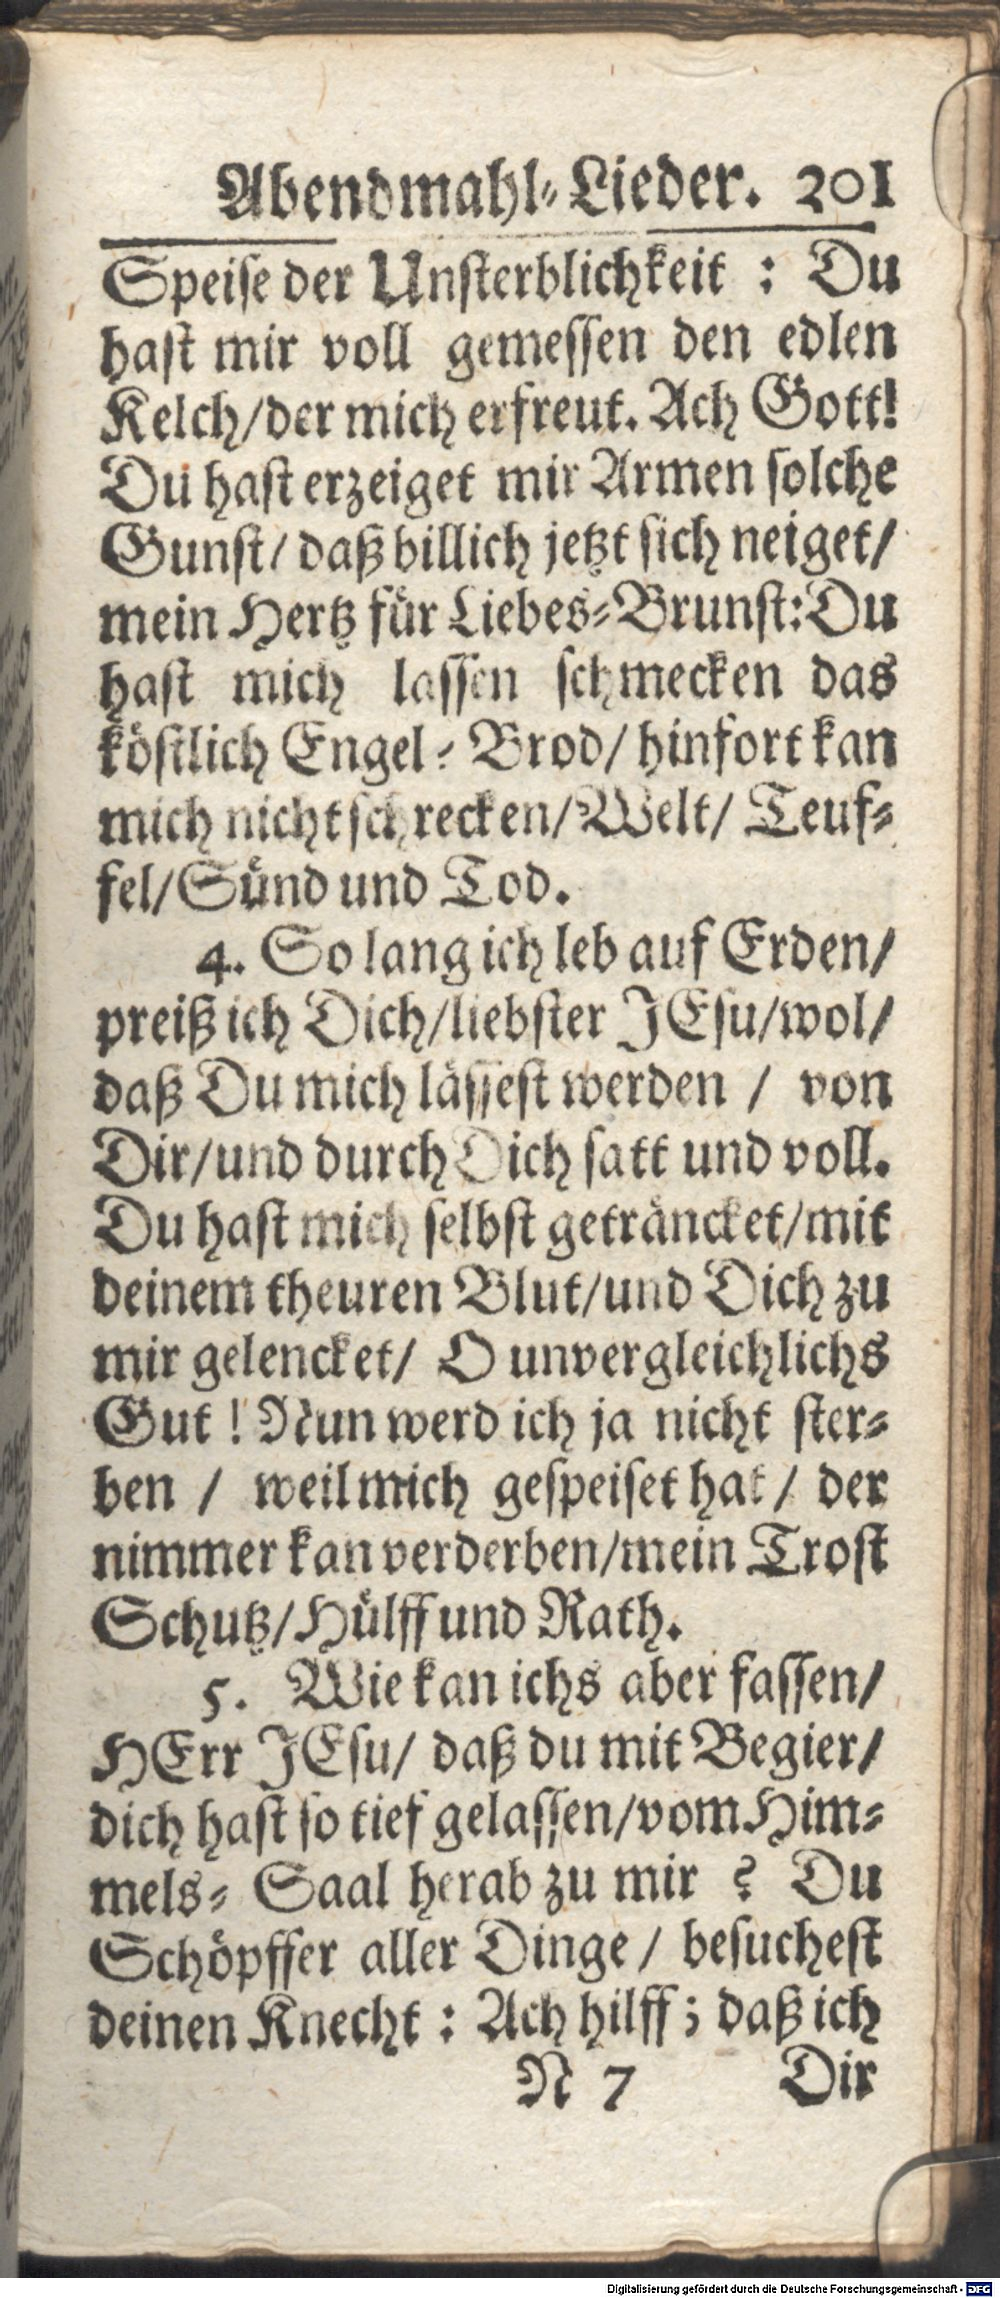 Abendmahl-Lieder. 201
Speise der Unsterblichkeit : Du
hast mir voll gemessen den edlen
Kelch/der mich erfreut. Ach Gott!
Du hast erzeiget mir Armen solche
Gunst/ daß billich jetzt sich neiget/
mein Hertz für Liebes-Brunst:Du
hast mich lassen schmecken das
köstlich Engel-Brod/ hinfort kan
mich nicht schrecken/Welt/ Teuf-
fel/Sünd und Tod.
4. So lang ich leb auf Erden/
preiß ich Dich/liebster JEsu/wol/
daß Du mich lässest werden / von
Dir/und durch Dich satt und voll.
Du hast mich selbst geträncket/mit
deinem theuren Blut/und Dich zu
mir gelencket/ O unvergleichlichs
Gut ! Nun werd ich ja nicht ster-
ben / weil mich gespeiset hat / der
nimmer kan verderben/mein Trost
Schutz/Hülff und Rath.
5. Wie kan ichs aber fassen/
HErr JEsu/ daß du mit Begier/
dich hast so tief gelassen/vom Him-
mels- Saal herab zu mir ? Du
Schöpffer aller Dinge / besuchest
deinen Knecht : Ach hilff ; daß ich
N 7 Dir
Digitalisierung gefördert durch die Deutsche Forschungsgemeinschaft - DFG